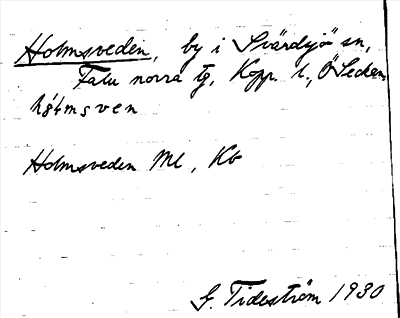 Holmsveden, by i Svärdsjö sn,
Falu norra tg, Kopp. l.,
hó̀lmsven
Holmsveden Ml, Kb
G. Tideström 1930